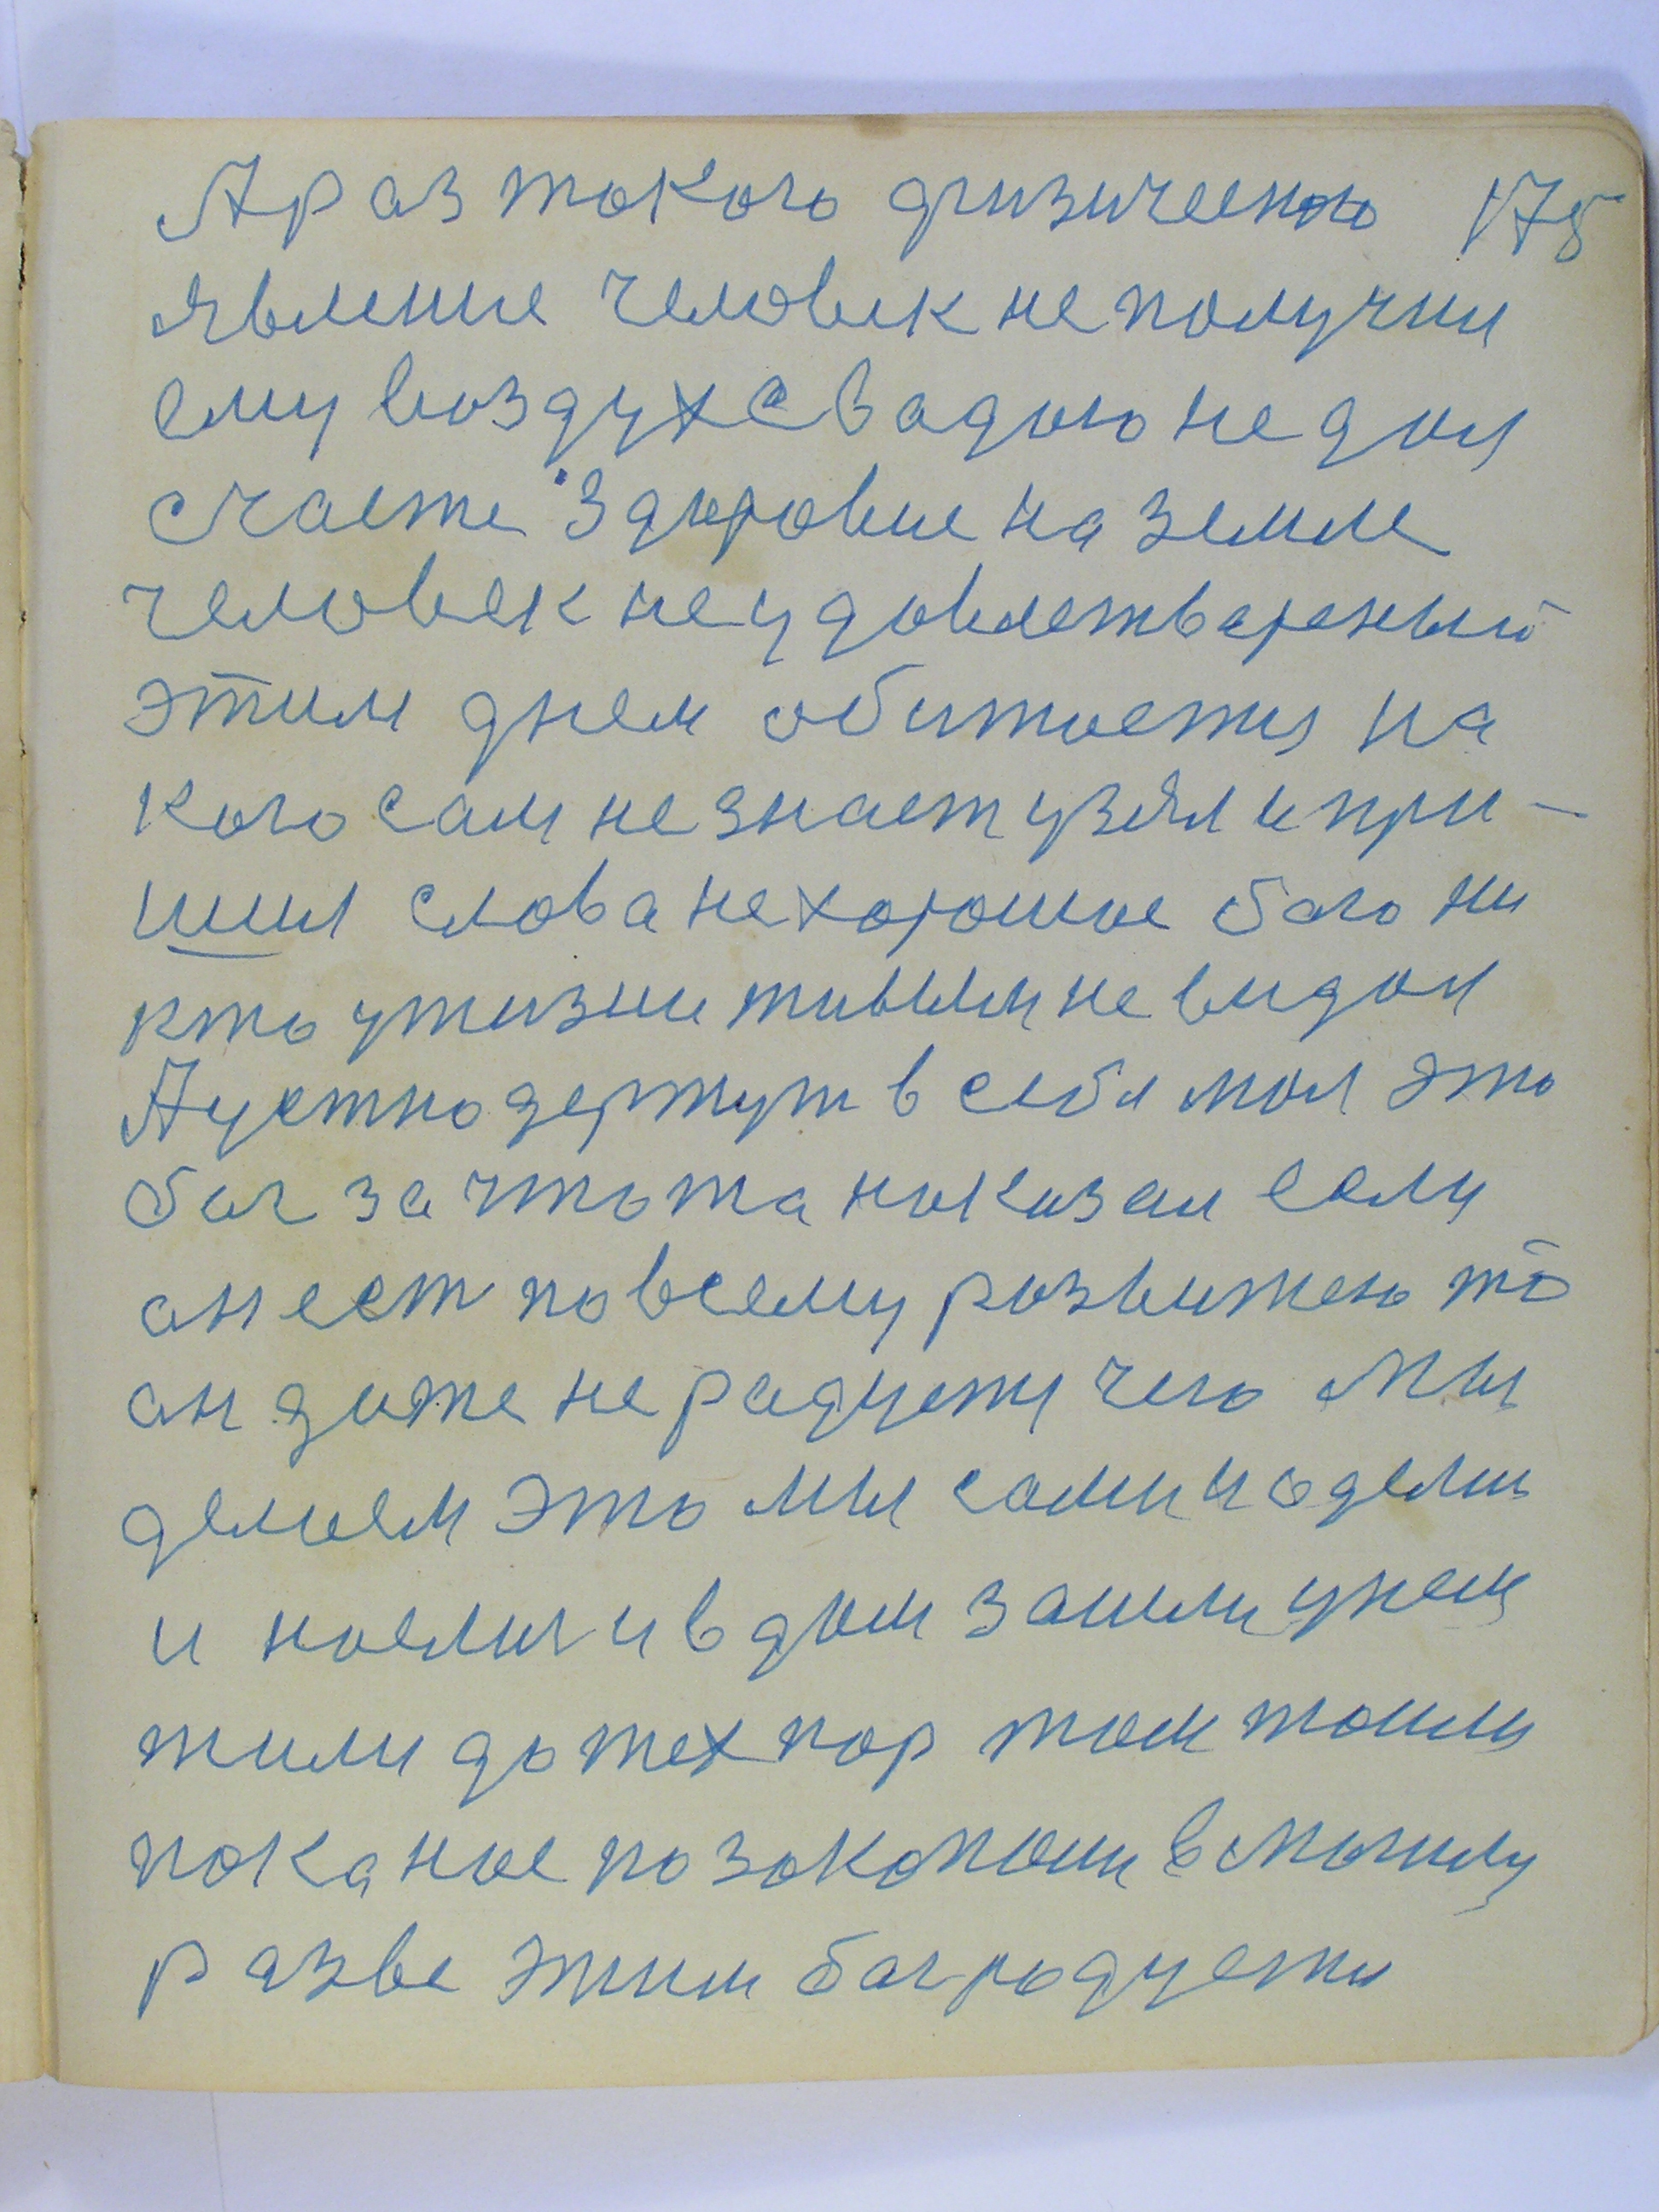 А раз такого физическою 175
явление человек не получил
ему воздух с вадою не дал
счастe здоровие на земле
человек не удовлетвареный
этим днем обитается на
кого сам не знает узял и при-
шил слова не хорошие бого ни
кто у жизни живым не видал
А устно держут в себя мол это
бог за что то наказал если
он ест по всему развитею то
он даже не радуется чего мы
делаем это мы сами надели
и наелись и в дом зашли у нем
жили до тех пор там жили
пока нас по закаполи в могилу
разве этим бог радуется